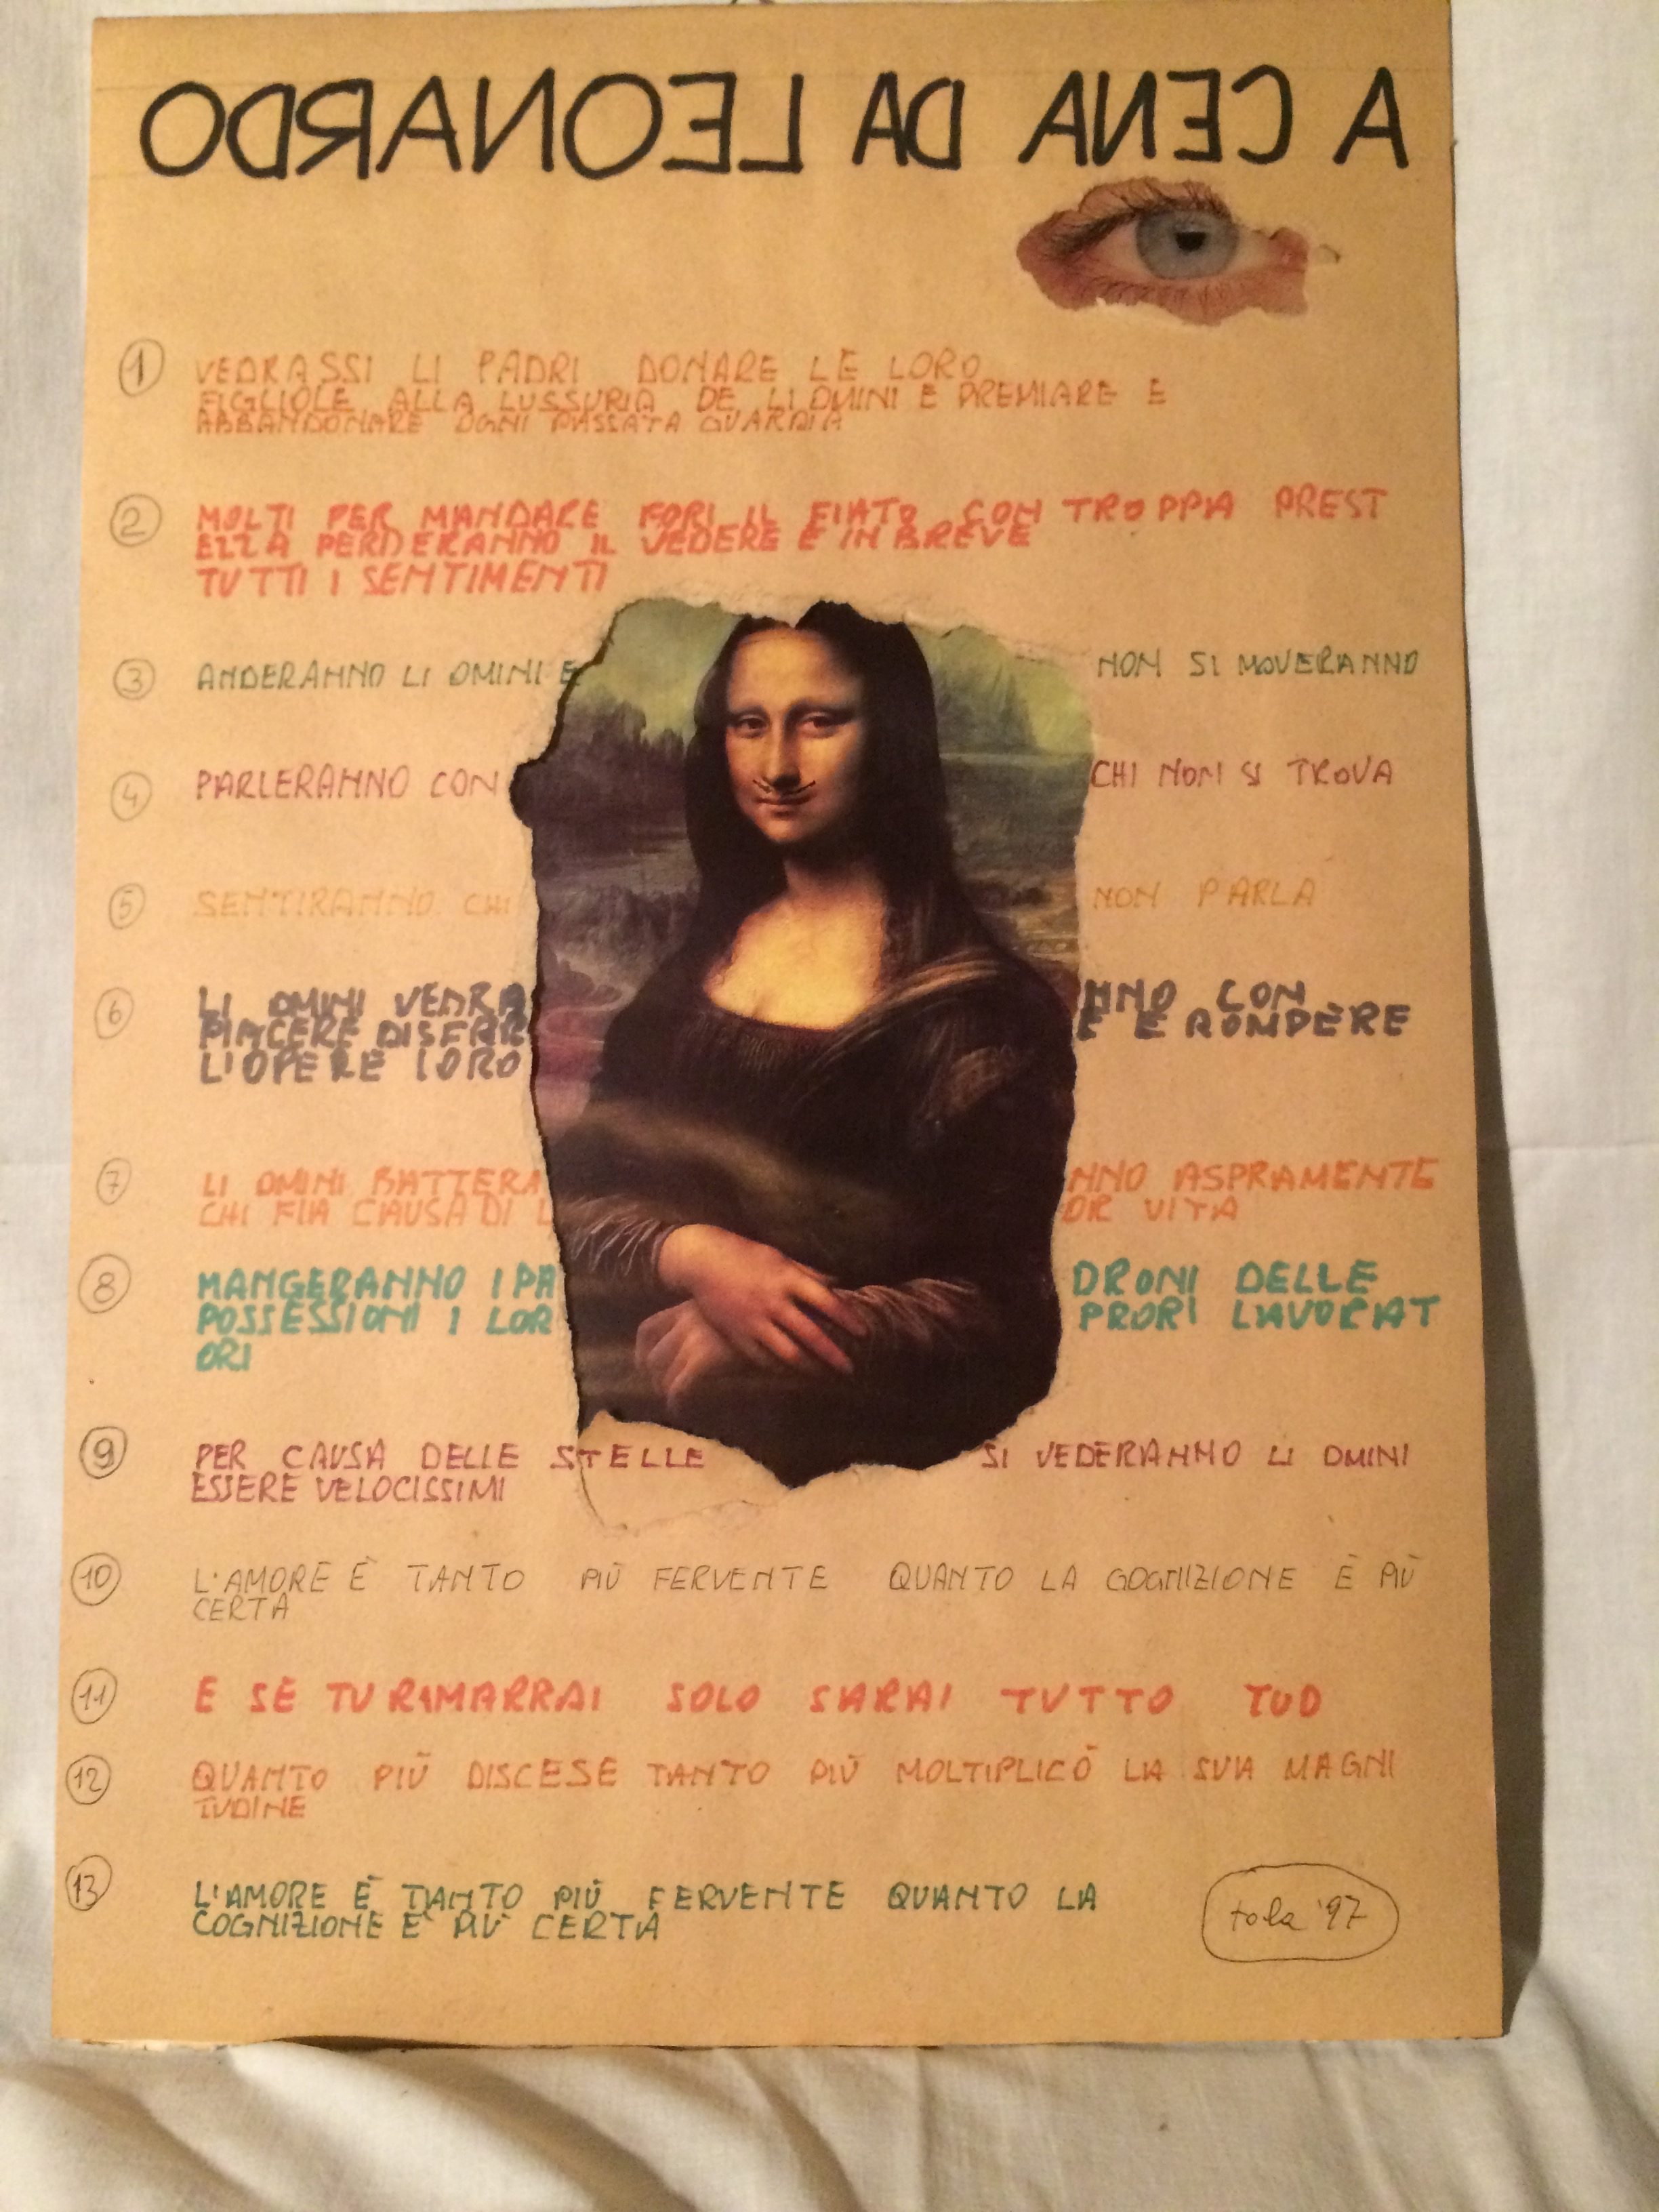 A CENA DA LEONARDO
1 VEDRASSI LI PADRI DONARE LE LORO
FIGLIOLE ALLA LUSSURIA DE LI OMINI E PREMIARE E
ABBANDONARE OGNI PASSATA GUARDIA
2 MOLTI PER MANDARE FORI IL FIATO CON TROPPA PREST
EZZA PERDERANNO IL VEDERE E IN BREVE
TUTTI I SENTIMENTI
3 ANDERANNO LI OMINI E NON SI MOVERANNO
4 PARLERANNO CON CHI NON SI TROVA
5 SENTIRANNO CHI NON PARLA
6 LI OMINI VEDRA NNO CON
PIACERE DISFAR E E ROMPERE
L'OPERE LORO
7 LI OMINI BATTERA NNO ASPRAMENTE
CHI FIA CAUSA DI L OR VITA
8 MANGERANNO I PA DRONI DELLE
POSSESSIONI I LOR PRORI LAVORAT
ORI
9 PER CAUSA DELLE STELLE SI VEDERANNO LI OMINI
ESSERE VELOCISSIMI
10 L'AMORE È TANTO PIÙ FERVENTE QUANTO LA COGNIZIONE È PIÙ
CERTA
11 E SE TU RIMARRAI SOLO SARAI TUTTO TUO
12 QUANTO PIÙ DISCESE TANTO PIÙ MOLTIPLICÒ LA SUA MAGNI
TUDINE
13 L'AMORE È TANTO PIÙ FERVENTE QUANTO LA
COGNIZIONE E' PIU' CERTA
tola '97